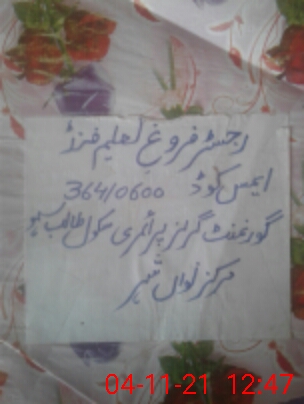 رجسٹر فروغ تعلیم فنڈ
ایمس کوڈ 364/0600
گورنمنٹ گرلز پرائمری سکول طالب
مرکز نواں شہر
04-11-21 12:47